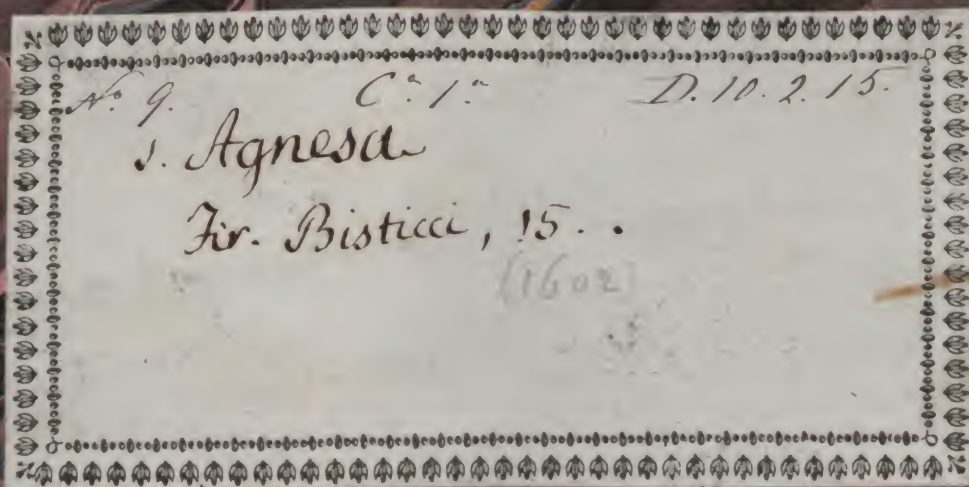 No. 9. Ca. 1.a D. 10. 2. 15.
S. Agnesa
Fir. Bisticci, 15 . .
(1602)